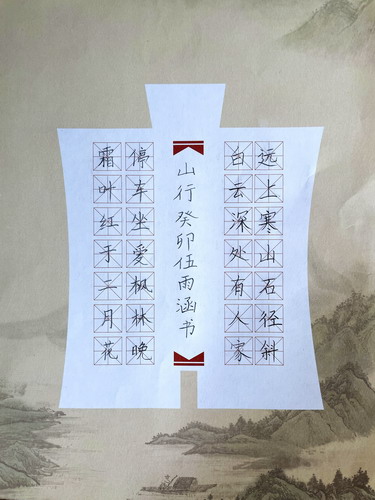 远上寒山石径斜
白云深处有人家
山行癸卯伍雨涵书
停车坐爱枫林晚
霜叶红于二月花